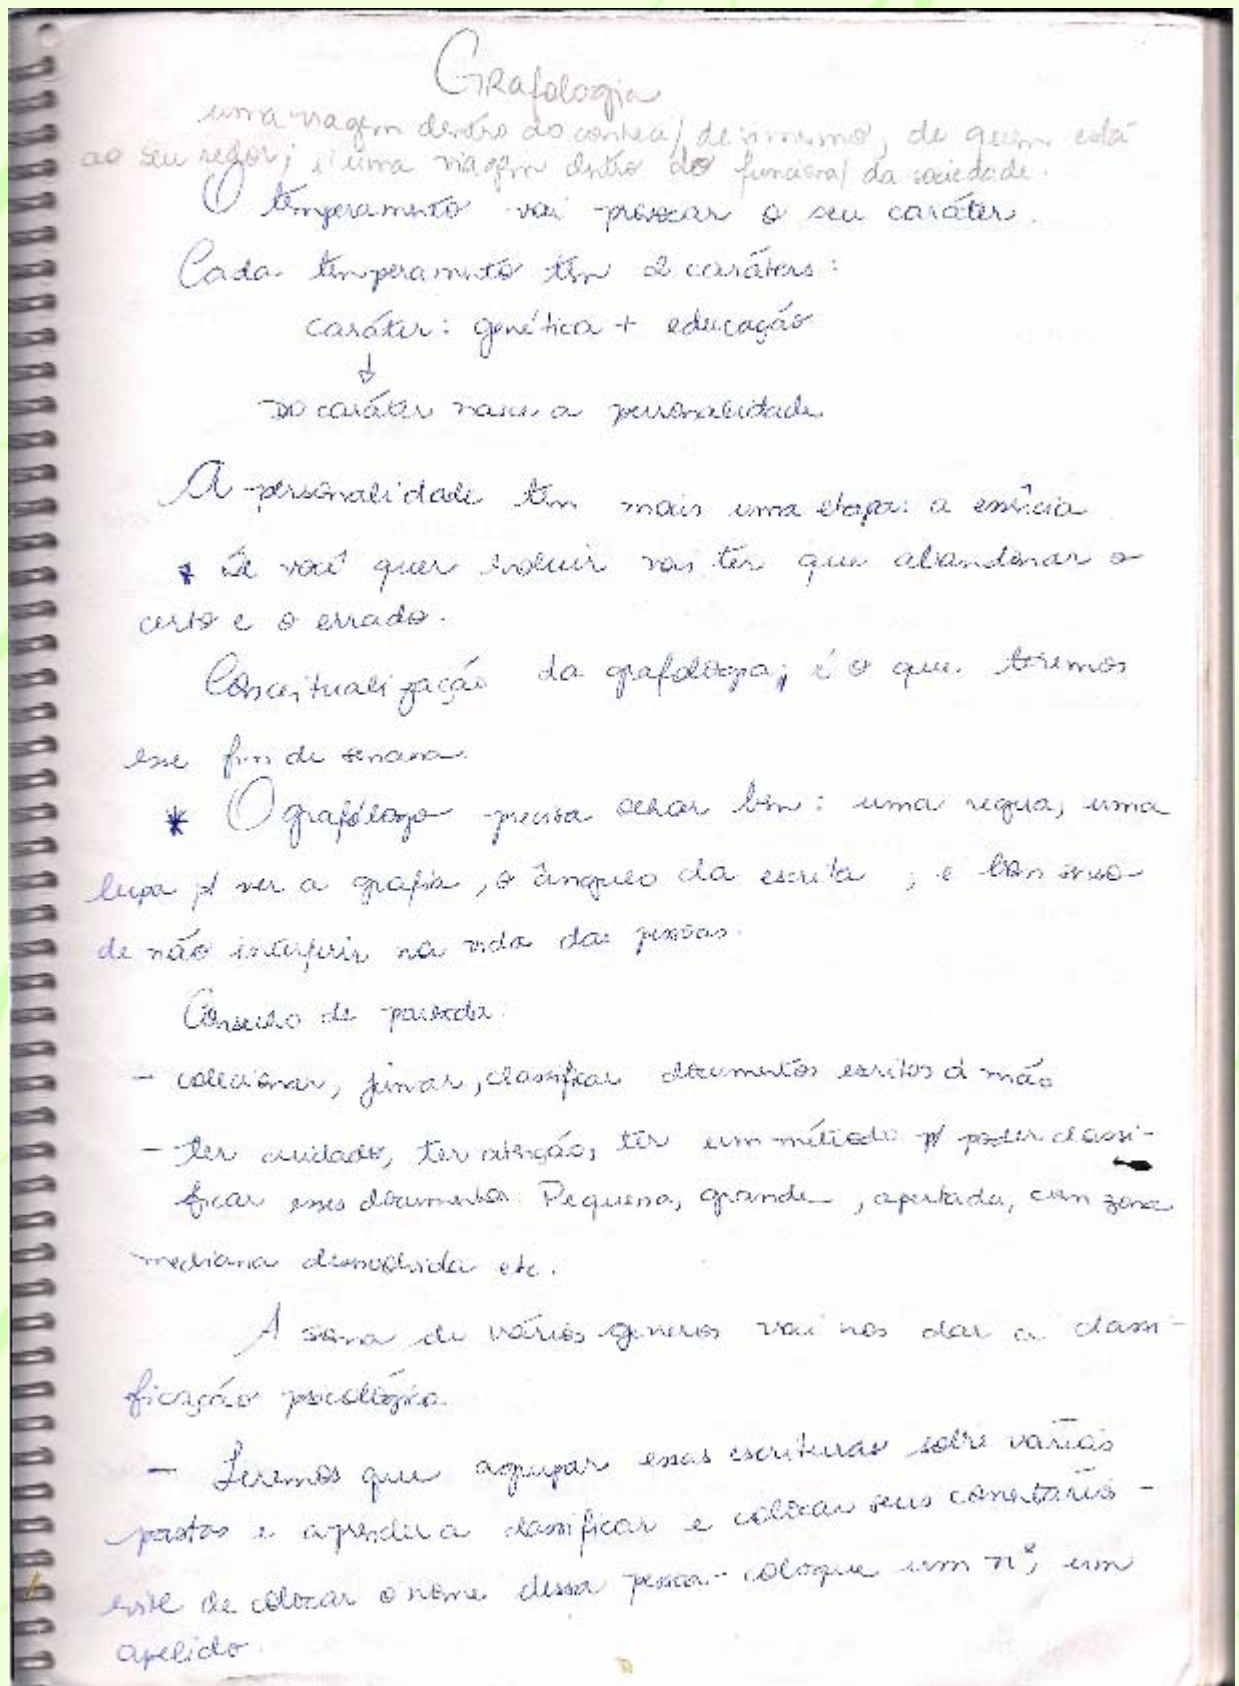 Grafologia
uma viagem dentro do conhec/ de si mesmo, de quem está
ao seu redor; é uma viagem dentro do funciona/ da sociedade.
O temperamento vai provocar o seu caráter.
Cada temperamento tem 2 caráters:
caráter: genética + educação
↓
Do caráter nasce a personalidade
A personalidade tem mais uma etapa: a essência
* Se você quer evoluir vai ter que abandonar o
certo e o errado.
Conceitualização da grafologia; é o que teremos
esse fim de semana.
* O grafólogo precisa olhar bem: uma regua, uma
lupa p/ ver a grafia, o ângulo da escrita, e bom senso
de não interferir na vida das pessoas.
Conselho de partida:
- colecionar, juntar, classificar documentos escritos à mão
- ter cuidado, ter atenção, ter um método p/ poder classi-
ficar esses documentos: Pequena, grande, apertada, com zona
mediana desenvolvida etc.
A soma de vários generos vai nos dar a classi-
ficação psicológica.
- Teremos que agrupar essas escrituras sobre varias
pastas e aprender a classificar e colocar seus comentários -
evite de colocar o nome dessa pessoa - coloque um nº, um
apelido.